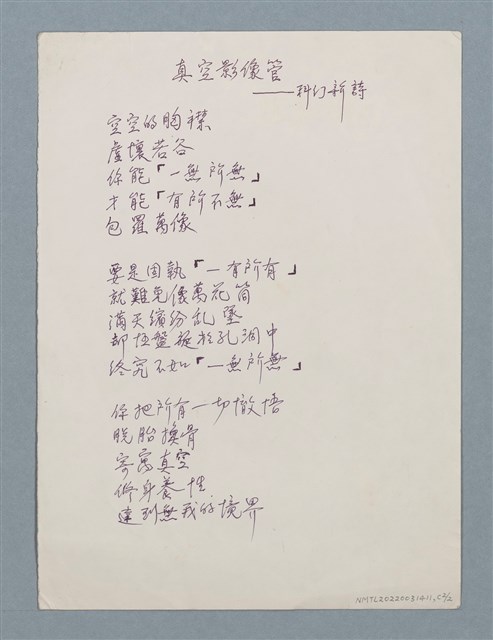 真空影像管
——科幻新詩
空空的胸襟
虛壞若谷
你能「一無所無」
才能「有所不無」
包羅萬像
要是固執「一有所有」
就難免像萬花筒
滿天繽紛亂墜
却恒盤旋於孔洞中
終究不如「一無所無」
你把所有一切撤悟
脫胎換骨
寄寓真空
修身養性
達到無我的境界
NMTL20220031411, C2/2